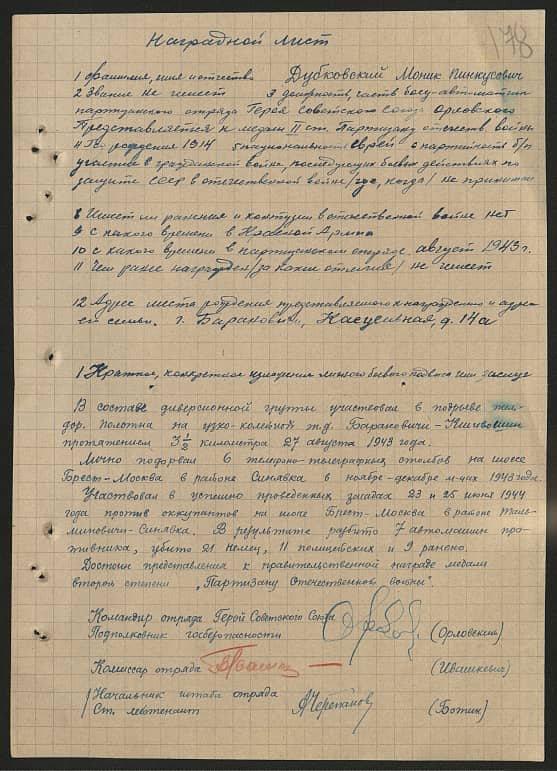 178
Наградной лист
1 фамилия, имя и отчество Дубковский Моник Пинкусович
2 Звание не имеет 3 должность, часть боец-автоматчик
партизанского отряда Героя Советского Союза Орловского
Представляется к медали II ст. Партизану отечеств. войны
4 Год рождения 1914 5 национальность еврей 6 партийность б/п
участие в гражданской войне, последующих боевых действиях по
защите СССР в отечественной войне/где, когда/ не принимал
8 Имеет ли ранения и контузии в отечественной войне нет
9 с какого времени в Красной Армии
10 с какого времени в партизанском отряде август 1943 г.
11 Чем ранее награжден/за какие отличия/ не имеет
12 Адрес места рождения представляемого к награждению и адрес
его семьи. г. Барановичи, д. 14а
1 Краткое, конкретное изложение личного боевого подвига или заслуг
В составе диверсионной группы участвовал в подрыве жел-
дор. полотна на узко-колейной ж.д. Барановичи-
протяжением 3 1/2 километра 27 августа 1943 года.
Лично подорвал 6 телефоно-телеграфных столбов на шоссе
Брест-Москва в районе Синявка в ноябре-декабре м-цах 1943 годы.
Участвовал в успешно проведенных засадах 23 и 25 июня 1944
года против оккупантов на шосе Брест-Москва в районе Таль-
миновичи-Синявка. В результате разбито 7 автомашин про-
тивника, убито 21 немец, 11 полицейских и 9 ранено.
Достоин представления к правительственной награде медали
второй степени „Партизану Отечественной войны".
Командир отряда Герой Советского Союза
Подполковник госбезопасности (Орловский)
Комиссар отряда (Ивашкевич)
/Начальник штаба отряда
Ст. лейтенант АЧерепанов (Ботин)